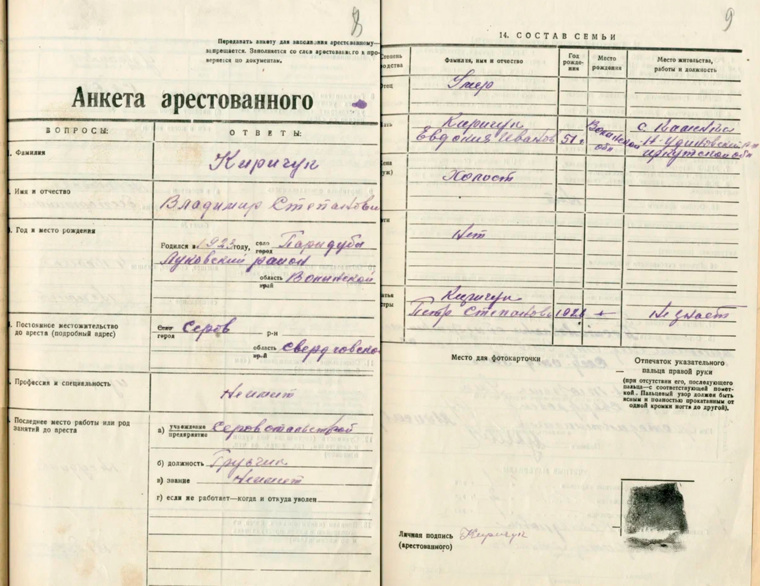 8
Передавать анкету для заполнения арестованному
запрещается. Заполняется со слов арестованного и про-
веряется по документам.
Анкета арестованного
ВОПРОСЫ: ОТВЕТЫ:
1. Фамилия
Киричук
2. Имя и отчество
Владимир Степанович
3. Год и место рождения
Родился в 1923 году, село город Паридубы
Луковский район
область край Волынской
4. Постоянное местожительство
до ареста (подробный адрес)
город Серов р-н
область край Свердловской
5. Профессия и специальность
Не имеет
6. Последнее место работы или род
занятий до ареста
а) учреждение предприятие
б) должность Грузчик
в) звание Не имеет
г) если не работает—когда и откуда уволен
9
14. СОСТАВ СЕМЬИ
Степень родства
Фамилия, имя и отчество
Год рожде-ния
Место рождения
Место жительства, работы и должность
Отец
Умер
Мать
Киричук
Евдокия Иванов
51 г.
Волынской
обл
с.
Н-Удинский р-н
Иркутской обл
Холост
Нет
Киричук
Петр Степанов
Не знает
Место для фотокарточки
Отпечаток указательного
пальца правой руки
(при отсутствии его, последующего
пальца—с соответствующей помет-
кой. Пальцевый узор должен быть
ясным и полностью прокатанным от
одной кромки ногтя до другой).
Личная подпись
(арестованного)
Киричук